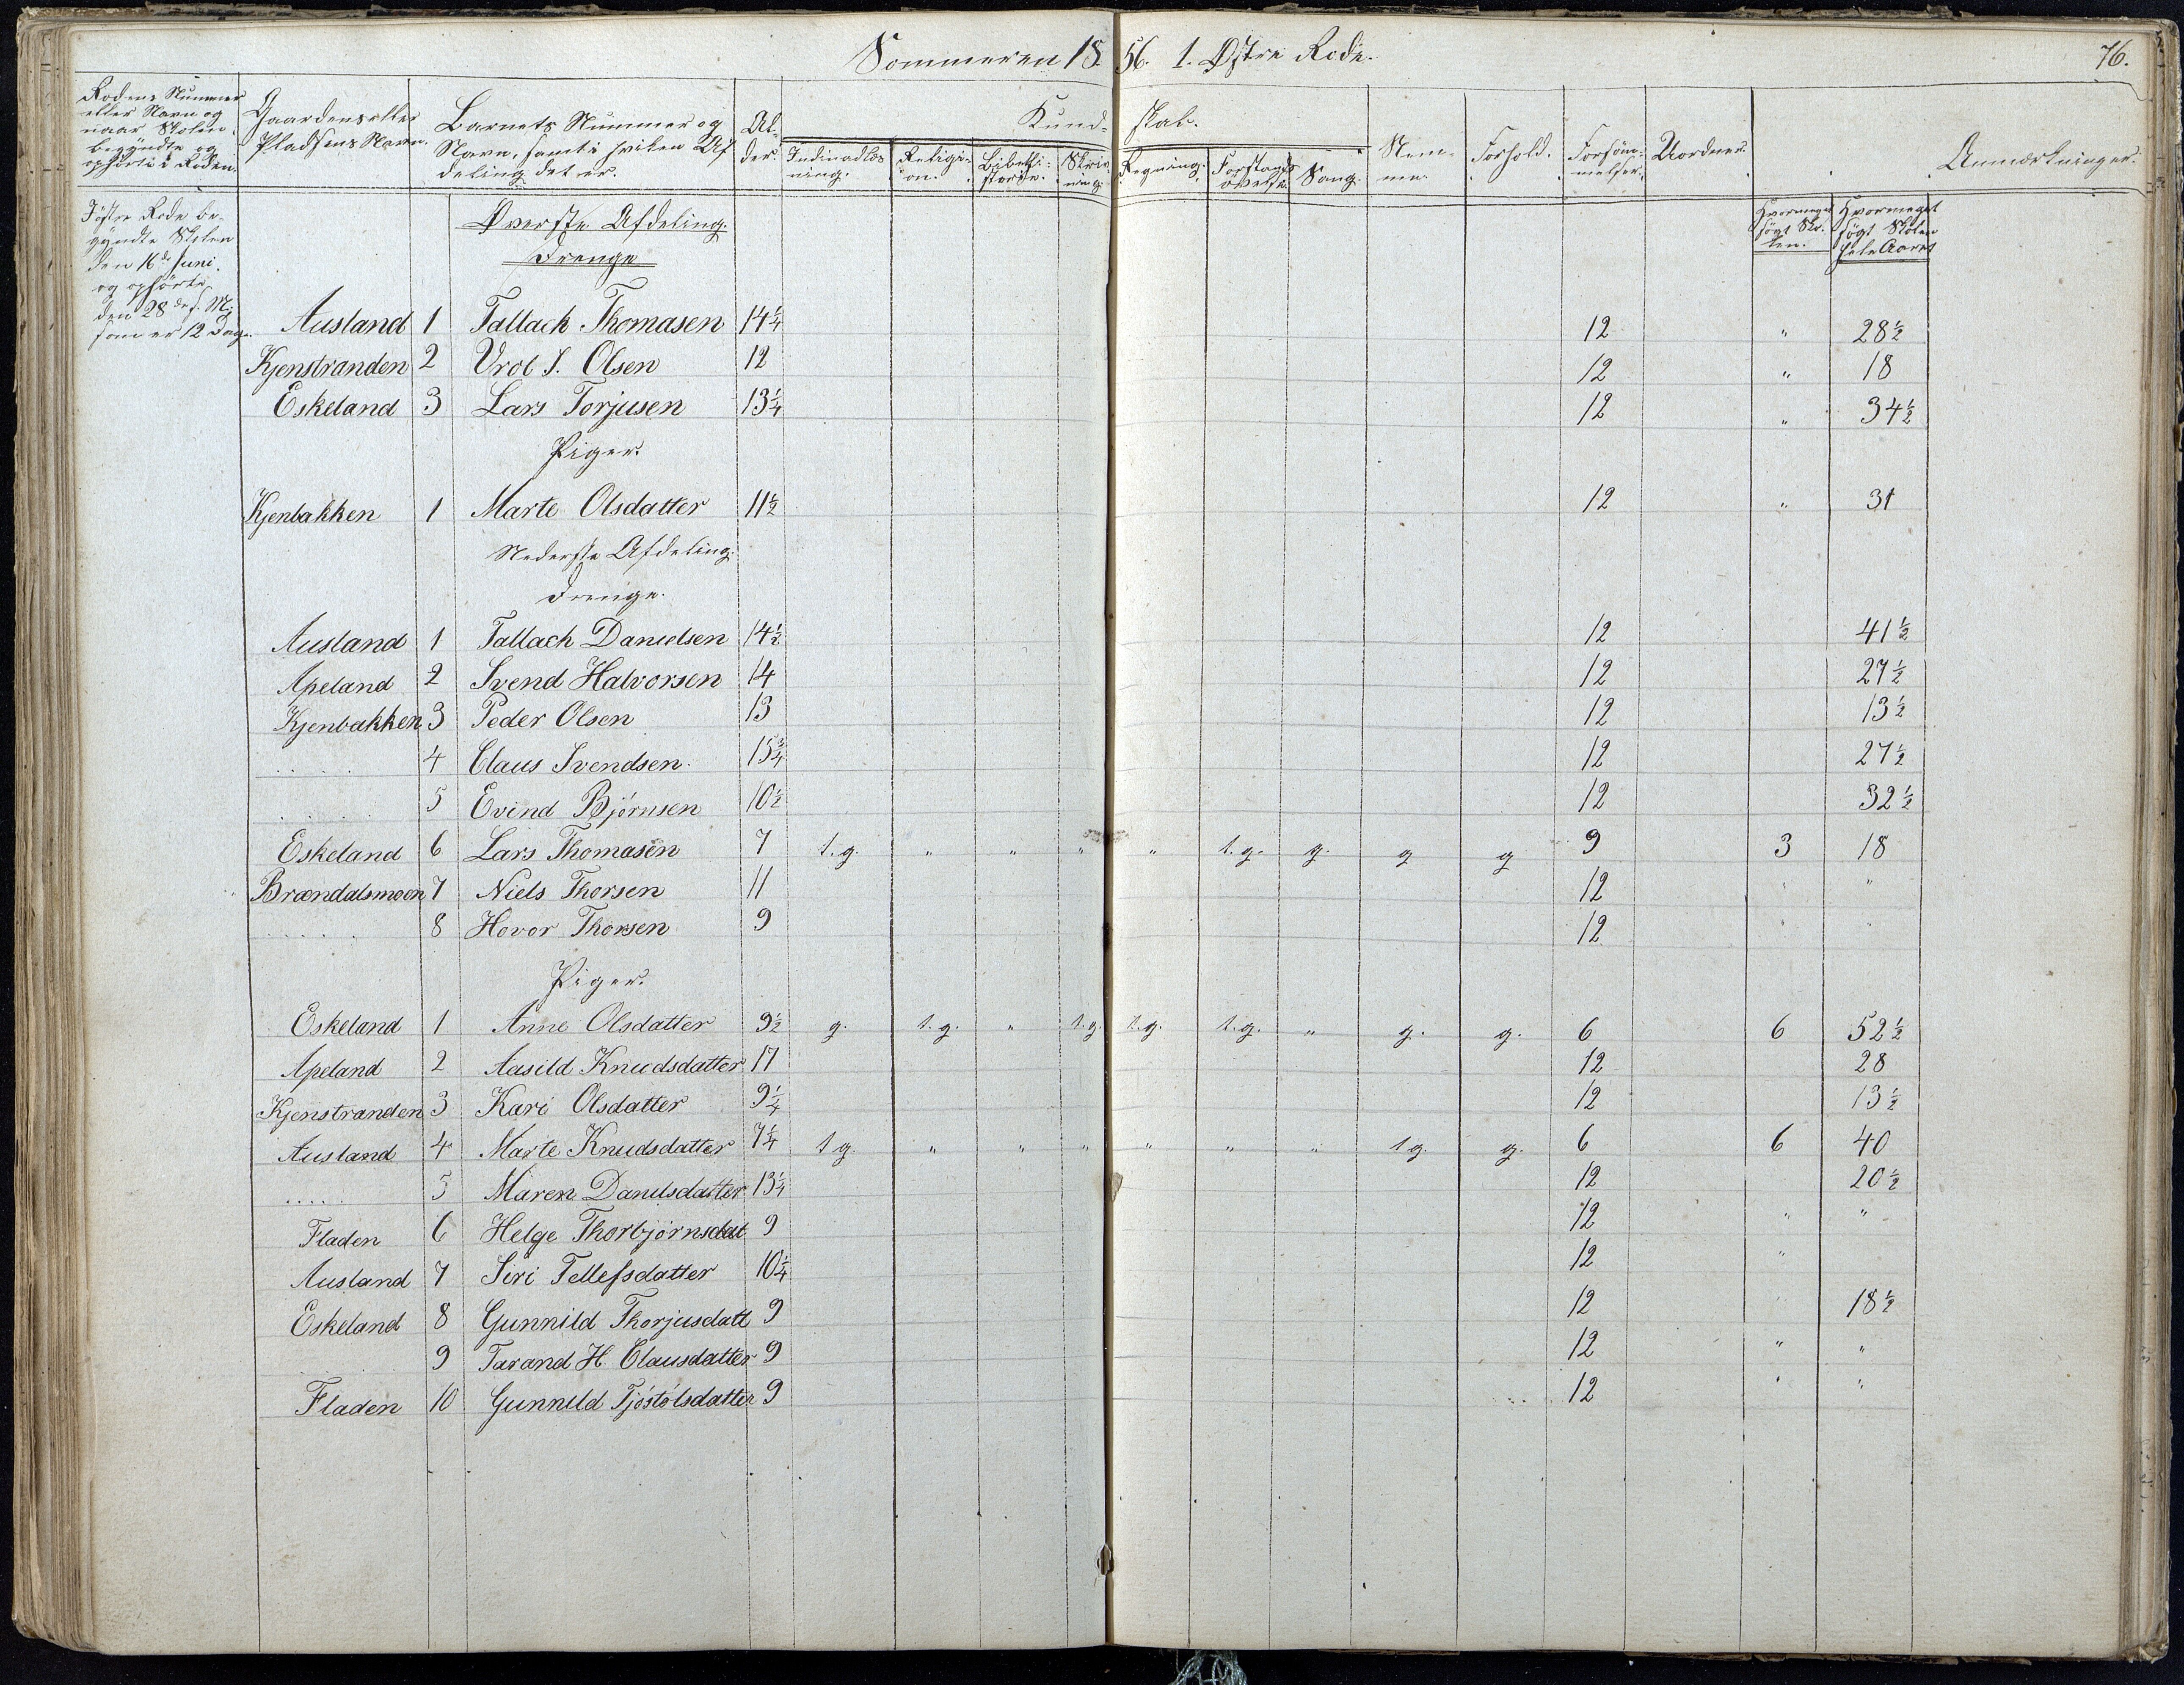 Sommeren 1856. 1. Østre Rode. 76.
Rodens Nummer eller Navn og naar Skolen begyndte og ophørte i Roden.
Gaardens eller Pladsens Navn.
Barnets Nummer og Navn, samt i hvilken Afdeling det er.
Alder.
Kundskab.
Indenadlæsning. Religion. Bibelhistorie. Skrivning. Regning. Forstandsøvelse. Sang.
Nemme. Forhold. Forsømmelser. Uorden. Anmærkninger.
Hvormeget søgt Skolen. Hvormeget søgt Skolen hele Aaret
I østre Rode begyndte Skolen
den 16de Juni
og ophørte
den 28de s. M.
som er 12 Dage.
Øverste Afdeling.
Drenge
Ausland 1 Tallack Thomasen 14 1/4 12 " 28 1/2
Kjenstranden 2 Vrol S. Olsen 12 12 " 18
Eskeland 3 Lars Torjusen 13 1/4 12 " 34 1/2
Piger.
Kjenbakken 1 Marte Olsdatter 11 1/2 12 " 31
Nederste Afdeling.
Drenge.
Ausland 1 Tallach Danielsen 14 1/2 12 41 1/2
Apeland 2 Svend Halvorsen 14 12 27 1/2
Kjenbakken 3 Peder Olsen 13 12 13 1/2
..... 4 Claus Svendsen. 15 3/4 12 27 1/2
..... 5 Evind Bjørnsen 10 1/2 12 32 1/2
Eskeland 6 Lars Thomasen 7 t.g. " " " " t.g. g. g g 9 3 18
Brændalsmoen 7 Niels Thorsen 11 12 " "
..... 8 Hovor Thorsen 9 12 " "
Piger.
Eskeland 1 Anne Olsdatter 9 1/2 g. t.g. " t.g. t.g. t.g. " g. g. 6 6 52 1/2
Apeland 2 Aasild Knudsdatter 17 12 28
Kjenstranden 3 Kari Olsdatter 9 1/4 12 13 1/2
Ausland 4 Marte Knudsdatter 7 1/4 t g. " " " " " " t g. g. 6 6 40
..... 5 Maren Danielsdatter 13 1/4 12 20 1/2
Fladen 6 Helge Thorbjørnsdat 9 12 " "
Ausland 7 Siri Tellefsdatter 10 1/4 12 "
Eskeland 8 Gunnild Thorjusdatt 9 12 18 1/2
9 Tarand H. Clausdatter 9 12 " "
Fladen 10 Gunnild Tjøstølsdatter 9 12 " "